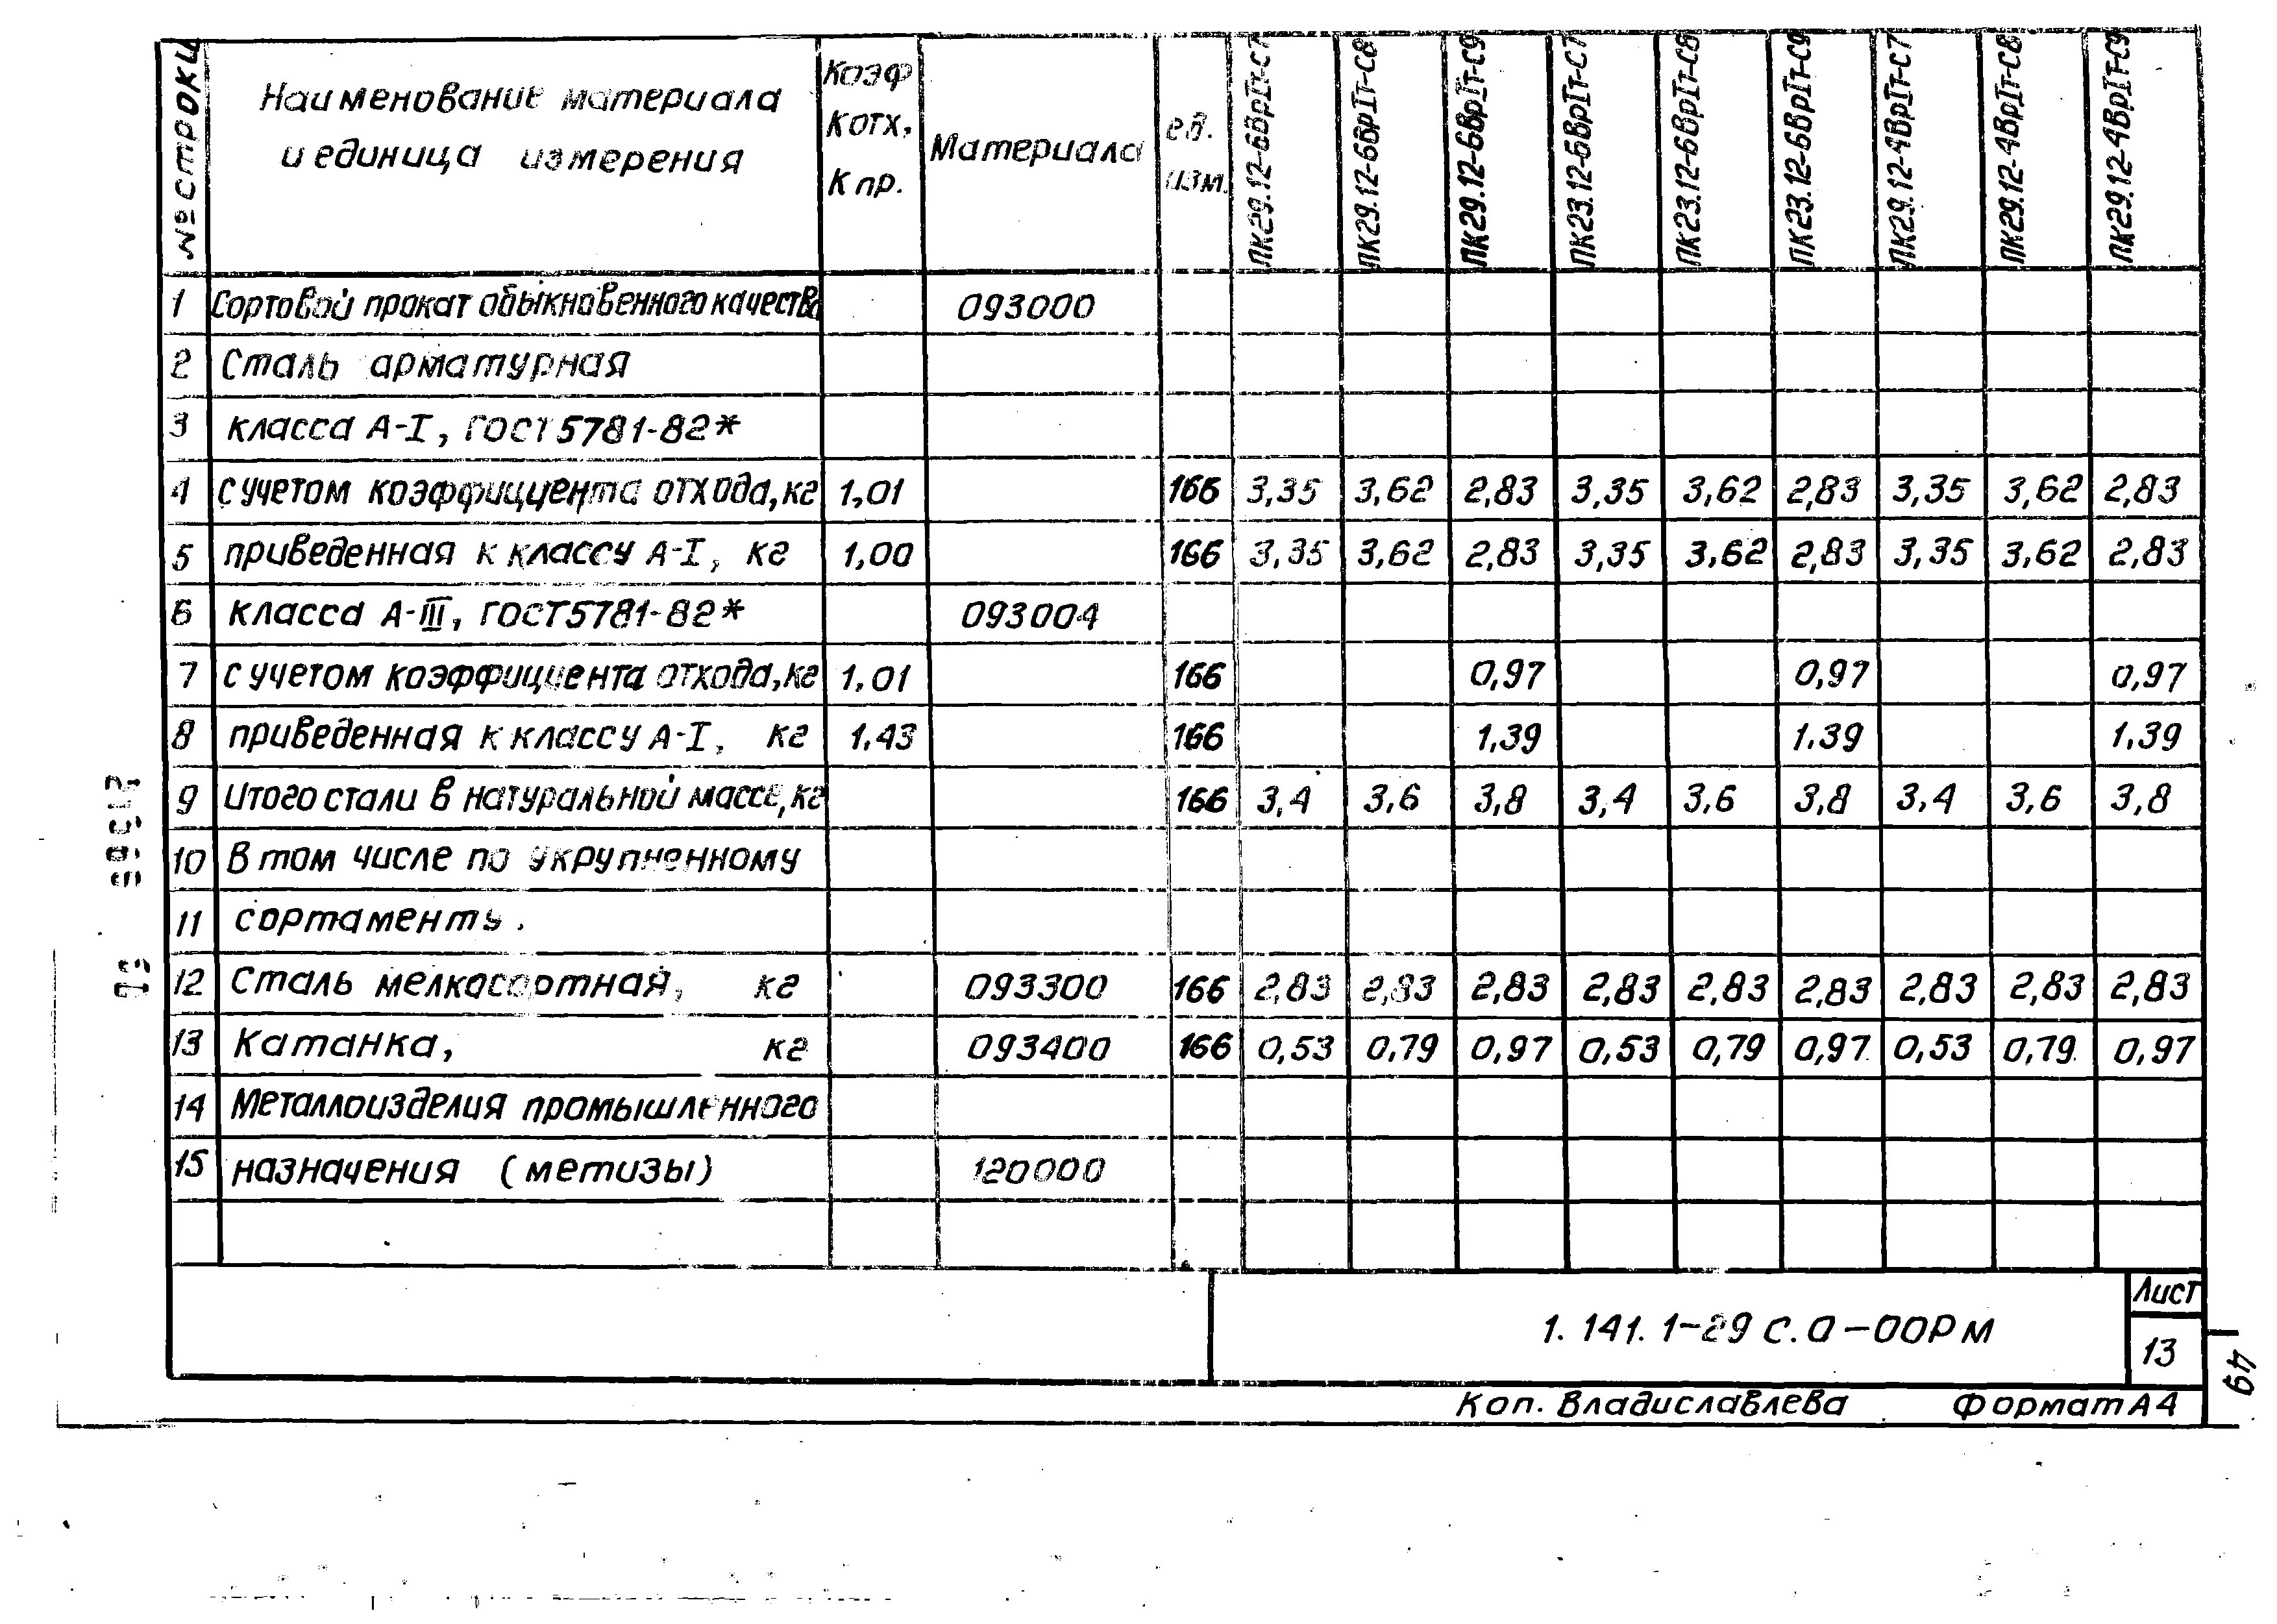 № строки
Наименование материала
и единица измерения
Коэф
Котх,
Кпр.
Материала
ед.
изм.
ПК29.12-6ВрIт-С7
ПК29.12-6ВрIт-С8
ПК29.12-6ВрIт-С9
ПК23.12-6ВрIт-С7
ПК23.12-6ВрIт-С8
ПК23.12-6ВрIт-С9
ПК29.12-4ВрIт-С7
ПК29.12-4ВрIт-С8
ПК29.12-4ВрIт-С9
1 Сортовой прокат обыкновенного качества 093000
2 Сталь арматурная
3 класса А-I, ГОСТ 5781-82*
4 с учетом коэффициента отхода, кг 1,01 166 3,35 3,62 2,83 3,35 3,62 2,83 3,35 3,62 2,83
5 приведенная к классу А-I, кг 1,00 166 3,35 3,62 2,83 3,35 3,62 2,83 3,35 3,62 2,83
6 класса А-III, ГОСТ 5781-82* 093004
7 с учетом коэффициента отхода, кг 1,01 166 0,97 0,97 0,97
8 приведенная к классу А-I, кг 1.43 166 1.39 1.39 1.39
9 Итого стали в натуральной массе, кг 166 3,4 3,6 3,8 3,4 3,6 3,8 3,4 3,6 3,8
10 В том числе по укрупненному
11 сортаменту.
12 Сталь мелкосортная, кг 093300 166 2,83 2,83 2,83 2,83 2,83 2,83 2,83 2,83 2,83
13 Катанка, кг 093400 166 0,53 0,79 0,97 0,53 0,79 0,97 0,53 0,79 0,97
14 Металлоизделия промышленного
15 назначения (метизы) 120000
1. 141. 1-29 с.0-00РМ
Лист
13
49
Коп. Владиславлева Формат А4